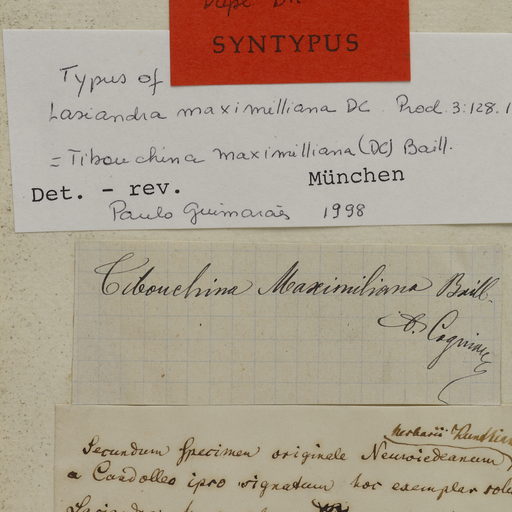 SYNTYPUS
Typus of
Lasiandra maximilliana DC. Prod. 3:128.
= Tibouchina maximilliana (DC) Baill.
Det. - rev. München
Paulo Guimarães 1998
Tibouchina Maximiliana Baill.
A. Cogniaux
herbarii
Secundum specimen originale Neuwiedeanum
a Candolleo ipso signatum hoc exemplar